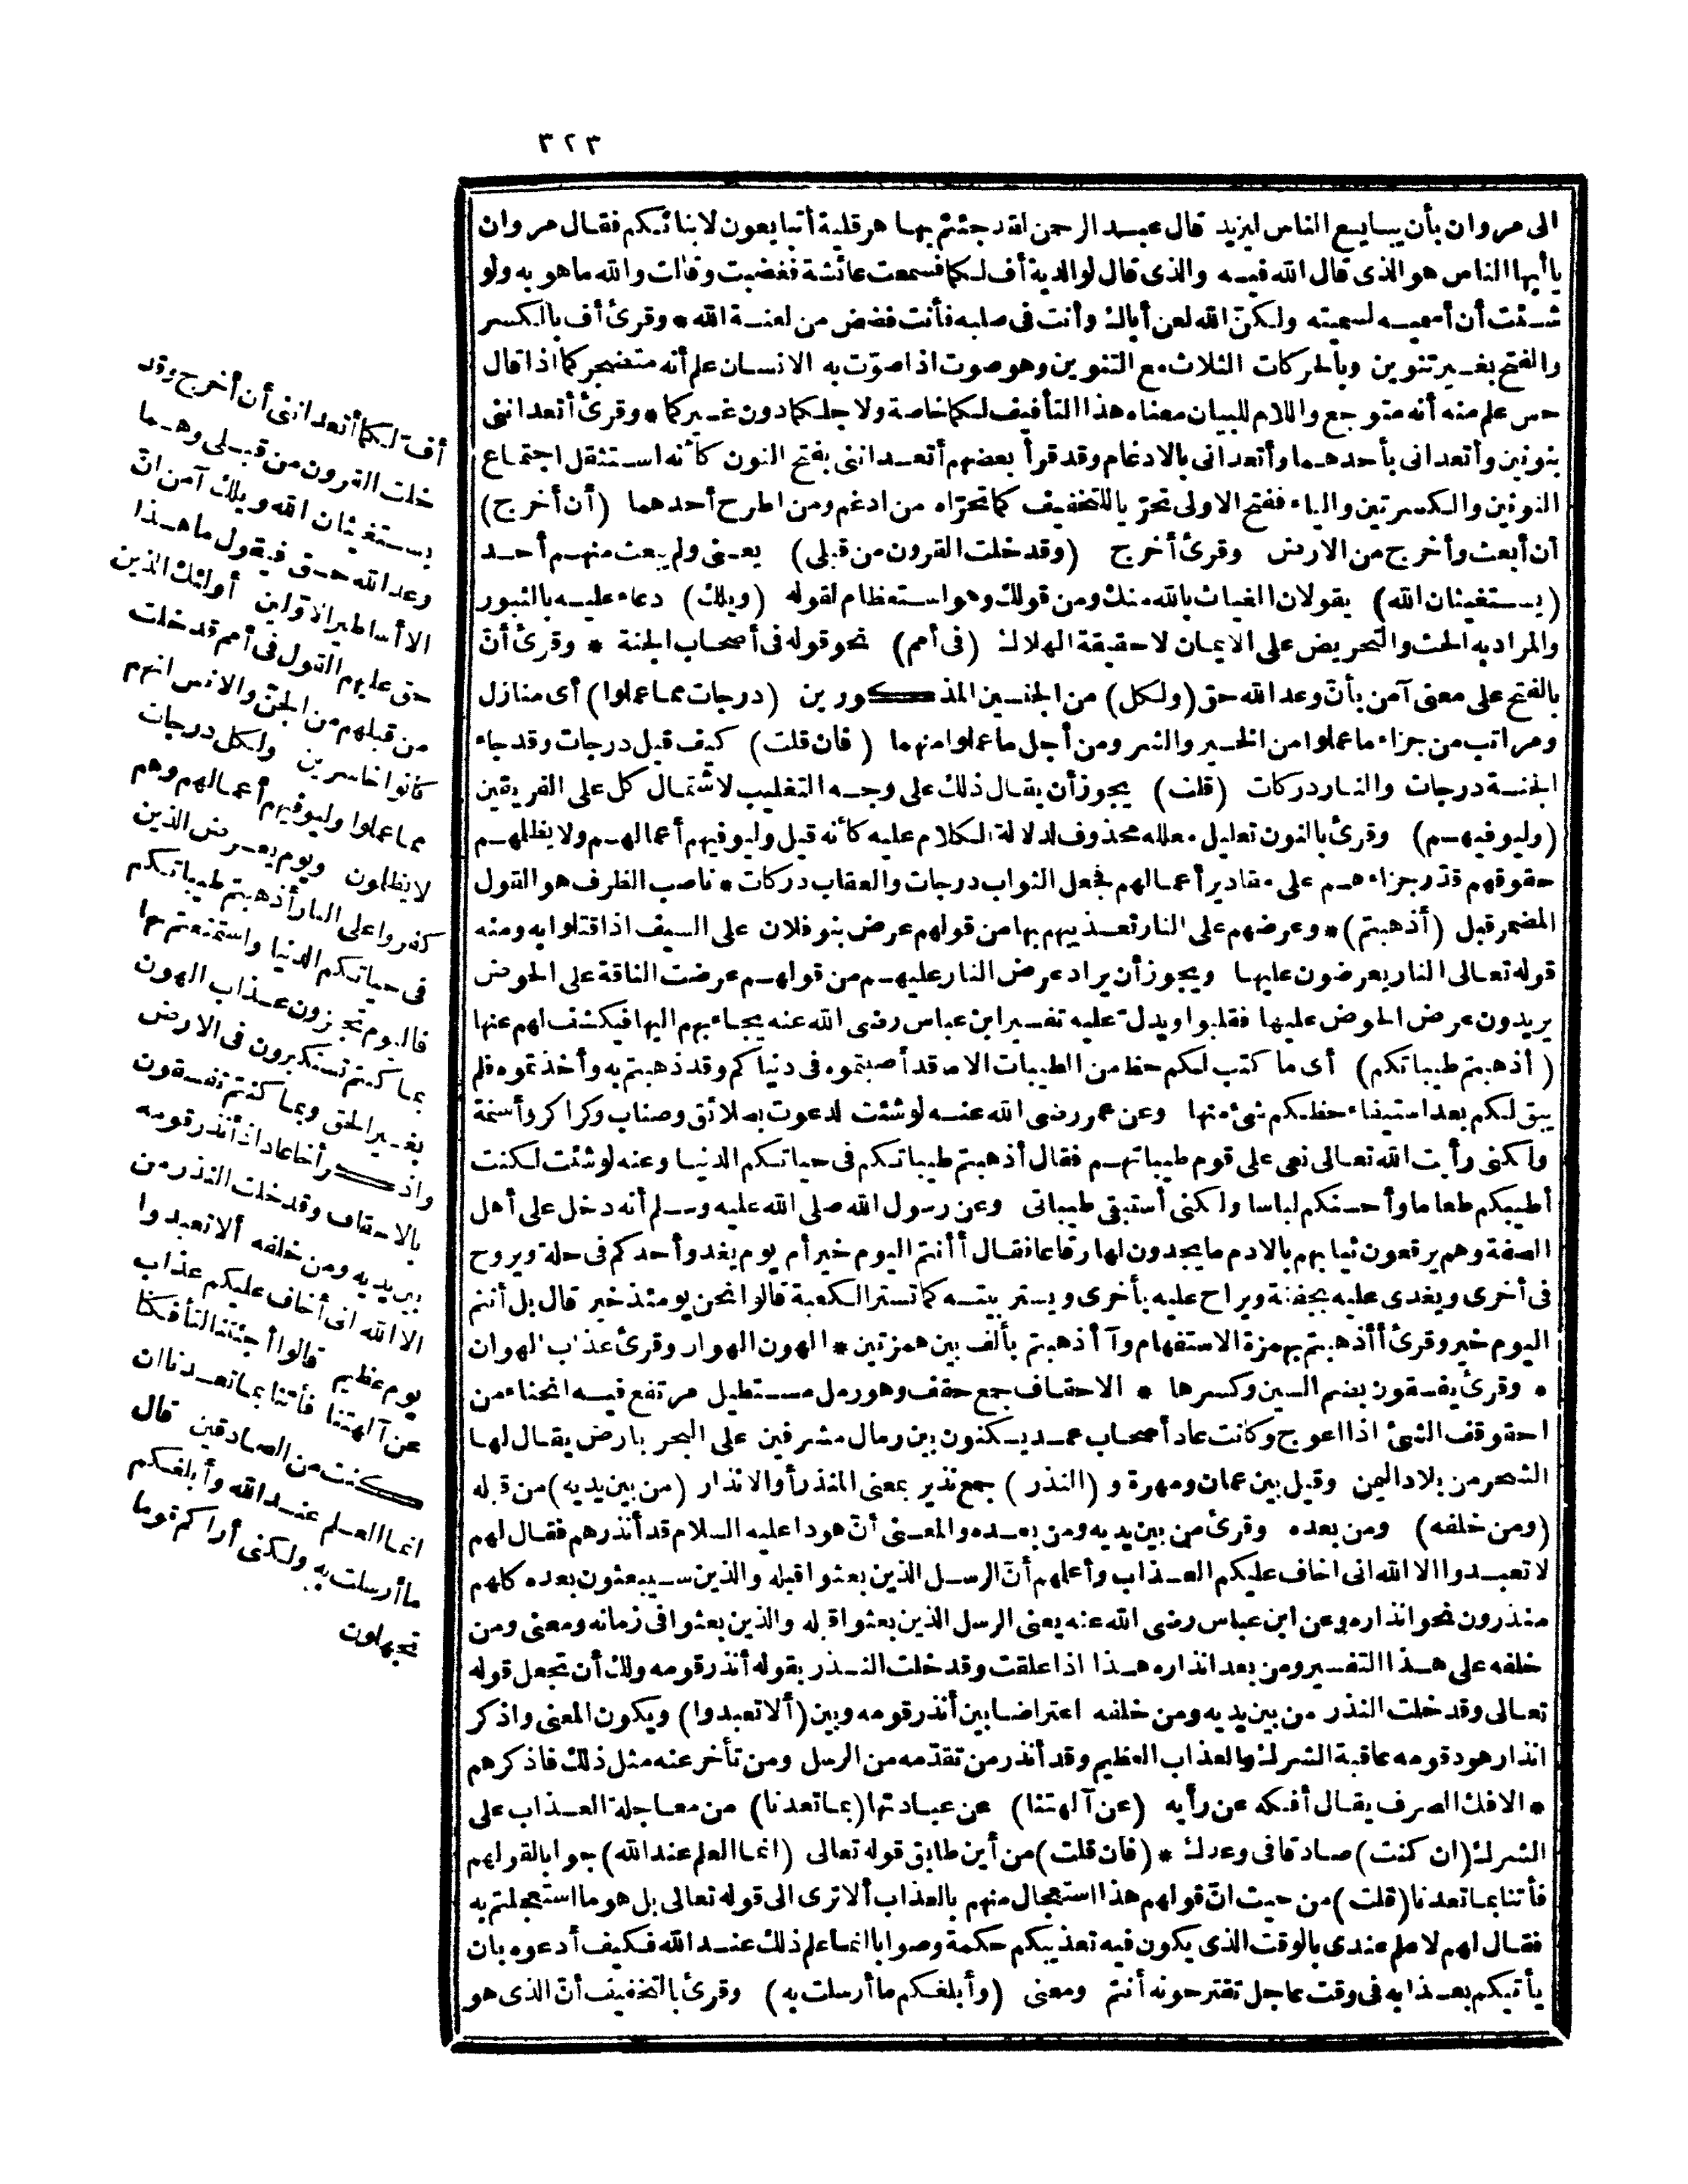 ٣٢٣
الى مروان بأن يبايع الناس ليزيد قال عبد الرحمن لقد جئتم بها هرقلية أتبايعون لابنائكم فقال مروان
يا أيها الناس هو الذى قال الله فيه والذى قال لوالديه أف لكما فسمعت عائشة فغضبت وقالت والله ما هو به ولو
شئت أن أسميه لسميته ولكنّ الله لعن أباك وأنت فى صلبه فأنت فضض من لعنة الله * وقرئ أف بالكسر
والفتح بغير تنوين وبالحركات الثلاث مع التنوين وهو صوت اذا صوّت به الانسان علم أنه متضجر كما اذا قال
حس علم منه أنه متوجع واللام للبيان معناه هذا التأفيف لكما خاصة ولاجلكما دون غيركما * وقرئ أتعداننى
بنونين وأتعدانى بأحدهما وأتعدانى بالادغام وقد قرأ بعضهم أتعداننى بفتح النون كأنه استثقل اجتماع
النونين والكسرتين والياء ففتح الاولى تحرّيا للتخفيف كما تحرّاه من ادغم ومن اطرح أحدهما (أن أخرج)
أن أبعث وأخرج من الارض وقرئ أخرج (وقد خلت القرون من قبلى) يعنى ولم يبعث منهم أحد
(يستغيثان الله) يقولان الغياث بالله منك ومن قولك وهو استعظام لقوله (ويلك) دعاء عليه بالثبور
والمراد به الحث والتحريض على الايمان لا حقيقة الهلاك (فى أمم) نحو قوله فى أصحاب الجنة * وقرئ أنّ
بالفتح على معنى آمن بأنّ وعد الله حق (ولكل) من الجنسين المذكورين (درجات مما عملوا) أى منازل
ومراتب من جزاء ما عملوا من الخير والشر ومن أجل ما عملوا منهما (فان قلت) كيف قيل درجات وقد جاء
الجنة درجات والنار دركات (قلت) يجوز أن يقال ذلك على وجه التغليب لاشتمال كل على الفريقين
(وليوفيهم) وقرئ بالنون تعليل معلله محذوف لدلالة الكلام عليه كأنه قيل وليوفيهم أعمالهم ولا يظلمهم
حقوقهم قدّر جزاءهم على مقادير أعمالهم فجعل الثواب درجات والعقاب دركات * ناصب الظرف هو القول
المضمر قبل (أذهبتم) * وعرضهم على النار تعذيبهم بها من قولهم عرض بنو فلان على السيف اذا قتلوا به ومنه
قوله تعالى النار يعرضون عليها ويجوز أن يراد عرض النار عليهم من قولهم عرضت الناقة على الحوض
يريدون عرض الحوض عليها فقلبوا ويدلّ عليه تفسير ابن عباس رضى الله عنه يجاء بهم اليها فيكشف لهم عنها
(أذهبتم طيباتكم) أى ما كتب لكم حظ من الطيبات الا ما قد أصبتموه فى دنياكم وقد ذهبتم به وأخذتموه فلم
يبق لكم بعد استيفاء حظكم شئ منها وعن عمر رضى الله عنه لو شئت لدعوت بصلائق وصناب وكراكر وأسنمة
ولكنى رأيت الله تعالى نعى على قوم طيباتهم فقال أذهبتم طيباتكم فى حياتكم الدنيا وعنه لو شئت لكنت
أطيبكم طعاما وأحسنكم لباسا ولكنى أستبقى طيباتى وعن رسول الله صلى الله عليه وسلم أنه دخل على أهل
الصفة وهم يرقعون ثيابهم بالادم ما يجدون لها رقاعا فقال أأنتم اليوم خير أم يوم يغدو أحدكم فى حلة ويروح
فى أخرى ويغدى عليه بجفنة ويراح عليه بأخرى ويستر بيته كما تستر الكعبة قالوا نحن يومئذ خير قال بل أنتم
اليوم خير وقرئ أأذهبتم بهمزة الاستفهام وآأذهبتم بألف بين همزتين * الهون الهوان وقرئ عذاب الهوان
* وقرئ يفسقون بضم السين وكسرها * الاحقاف جمع حقف وهو رمل مستطيل مرتفع فيه انحناء من
احقوقف الشئ اذا اعوج وكانت عاد أصحاب عمد يسكنون بين رمال مشرفين على البحر بارض يقال لها
الشحر من بلاد اليمن وقيل بين عمان ومهرة و (النذر) جمع نذير بمعنى المنذر أو الانذار (من بين يديه) من قبله
(ومن خلفه) ومن بعده وقرئ من بين يديه ومن بعده والمعنى أنّ هودا عليه السلام قد أنذرهم فقال لهم
لا تعبدوا الا الله انى اخاف عليكم العذاب وأعلمهم أنّ الرسل الذين بعثوا قبله والذين سيبعثون بعده كلهم
منذرون نحو انذاره وعن ابن عباس رضى الله عنه يعنى الرسل الذين بعثوا قبله والذين بعثوا فى زمانه ومعنى ومن
خلفه على هذا التفسير ومن بعد انذاره هذا اذا علقت وقد خلت النذر بقوله أنذر قومه ولك أن تجعل قوله
تعالى وقد خلت النذر من بين يديه ومن خلفه اعتراضا بين أنذر قومه وبين (ألا تعبدوا) ويكون المعنى واذكر
انذار هود قومه عاقبة الشرك والعذاب العظيم وقد أنذر من تقدّمه من الرسل ومن تأخر عنه مثل ذلك فاذكرهم
* الافك الصرف يقال أفكه عن رأيه (عن آلهتنا) عن عبادتها (بما تعدنا) من معاجلة العذاب على
الشرك (ان كنت) صادقا فى وعدك * (فان قلت) من أين طابق قوله تعالى (انما العلم عند الله) جوابا لقولهم
فأتنا بما تعدنا (قلت) من حيث انّ قولهم هذا استعجال منهم بالعذاب ألا ترى الى قوله تعالى بل هو ما استعجلتم به
فقال لهم لا علم عندى بالوقت الذى يكون فيه تعذيبكم حكمة وصوابا انما علم ذلك عند الله فكيف أدعوه بان
يأتيكم بعذابه فى وقت عاجل تقترحونه أنتم ومعنى (وأبلغكم ما أرسلت به) وقرئ بالتخفيف أنّ الذى هو
أفّ لكما أتعداننى أن أخرج وقد
خلت القرون من قبلى وهما
يستغيثان الله ويلك آمن انّ
وعد الله حق فيقول ما هذا
الا أساطير الاوّلين أولئك الذين
حق عليهم القول فى أمم قد خلت
من قبلهم من الجنّ والانس انهم
كانوا خاسرين ولكل درجات
مما عملوا وليوفيهم أعمالهم وهم
لا يظلمون ويوم يعرض الذين
كفروا على النار أذهبتم طيباتكم
فى حياتكم الدنيا واستمتعتم بها
فاليوم تجزون عذاب الهون
بما كنتم تستكبرون فى الارض
بغير الحق وبما كنتم تفسقون
واذكر أخا عاد اذ أنذر قومه
بالاحقاف وقد خلت النذر من
بين يديه ومن خلفه ألا تعبدوا
الا الله انى أخاف عليكم عذاب
يوم عظيم قالوا أجئتنا لتأفكنا
عن آلهتنا فأتنا بما تعدنا ان
كنت من الصادقين قال
انما العلم عند الله وأبلغكم
ما أرسلت به ولكنى أراكم قوما
تجهلون